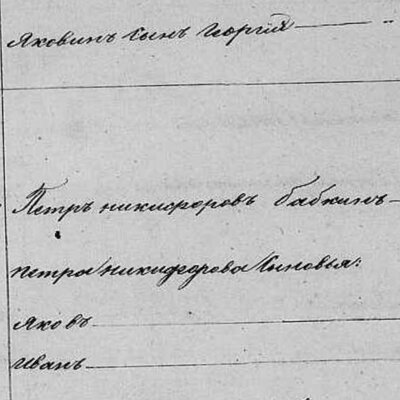 Яковинъ Сынъ Георгій
Петръ никифоровъ бабкинъ
петра никифорова Сыновья:
яковъ
иванъ